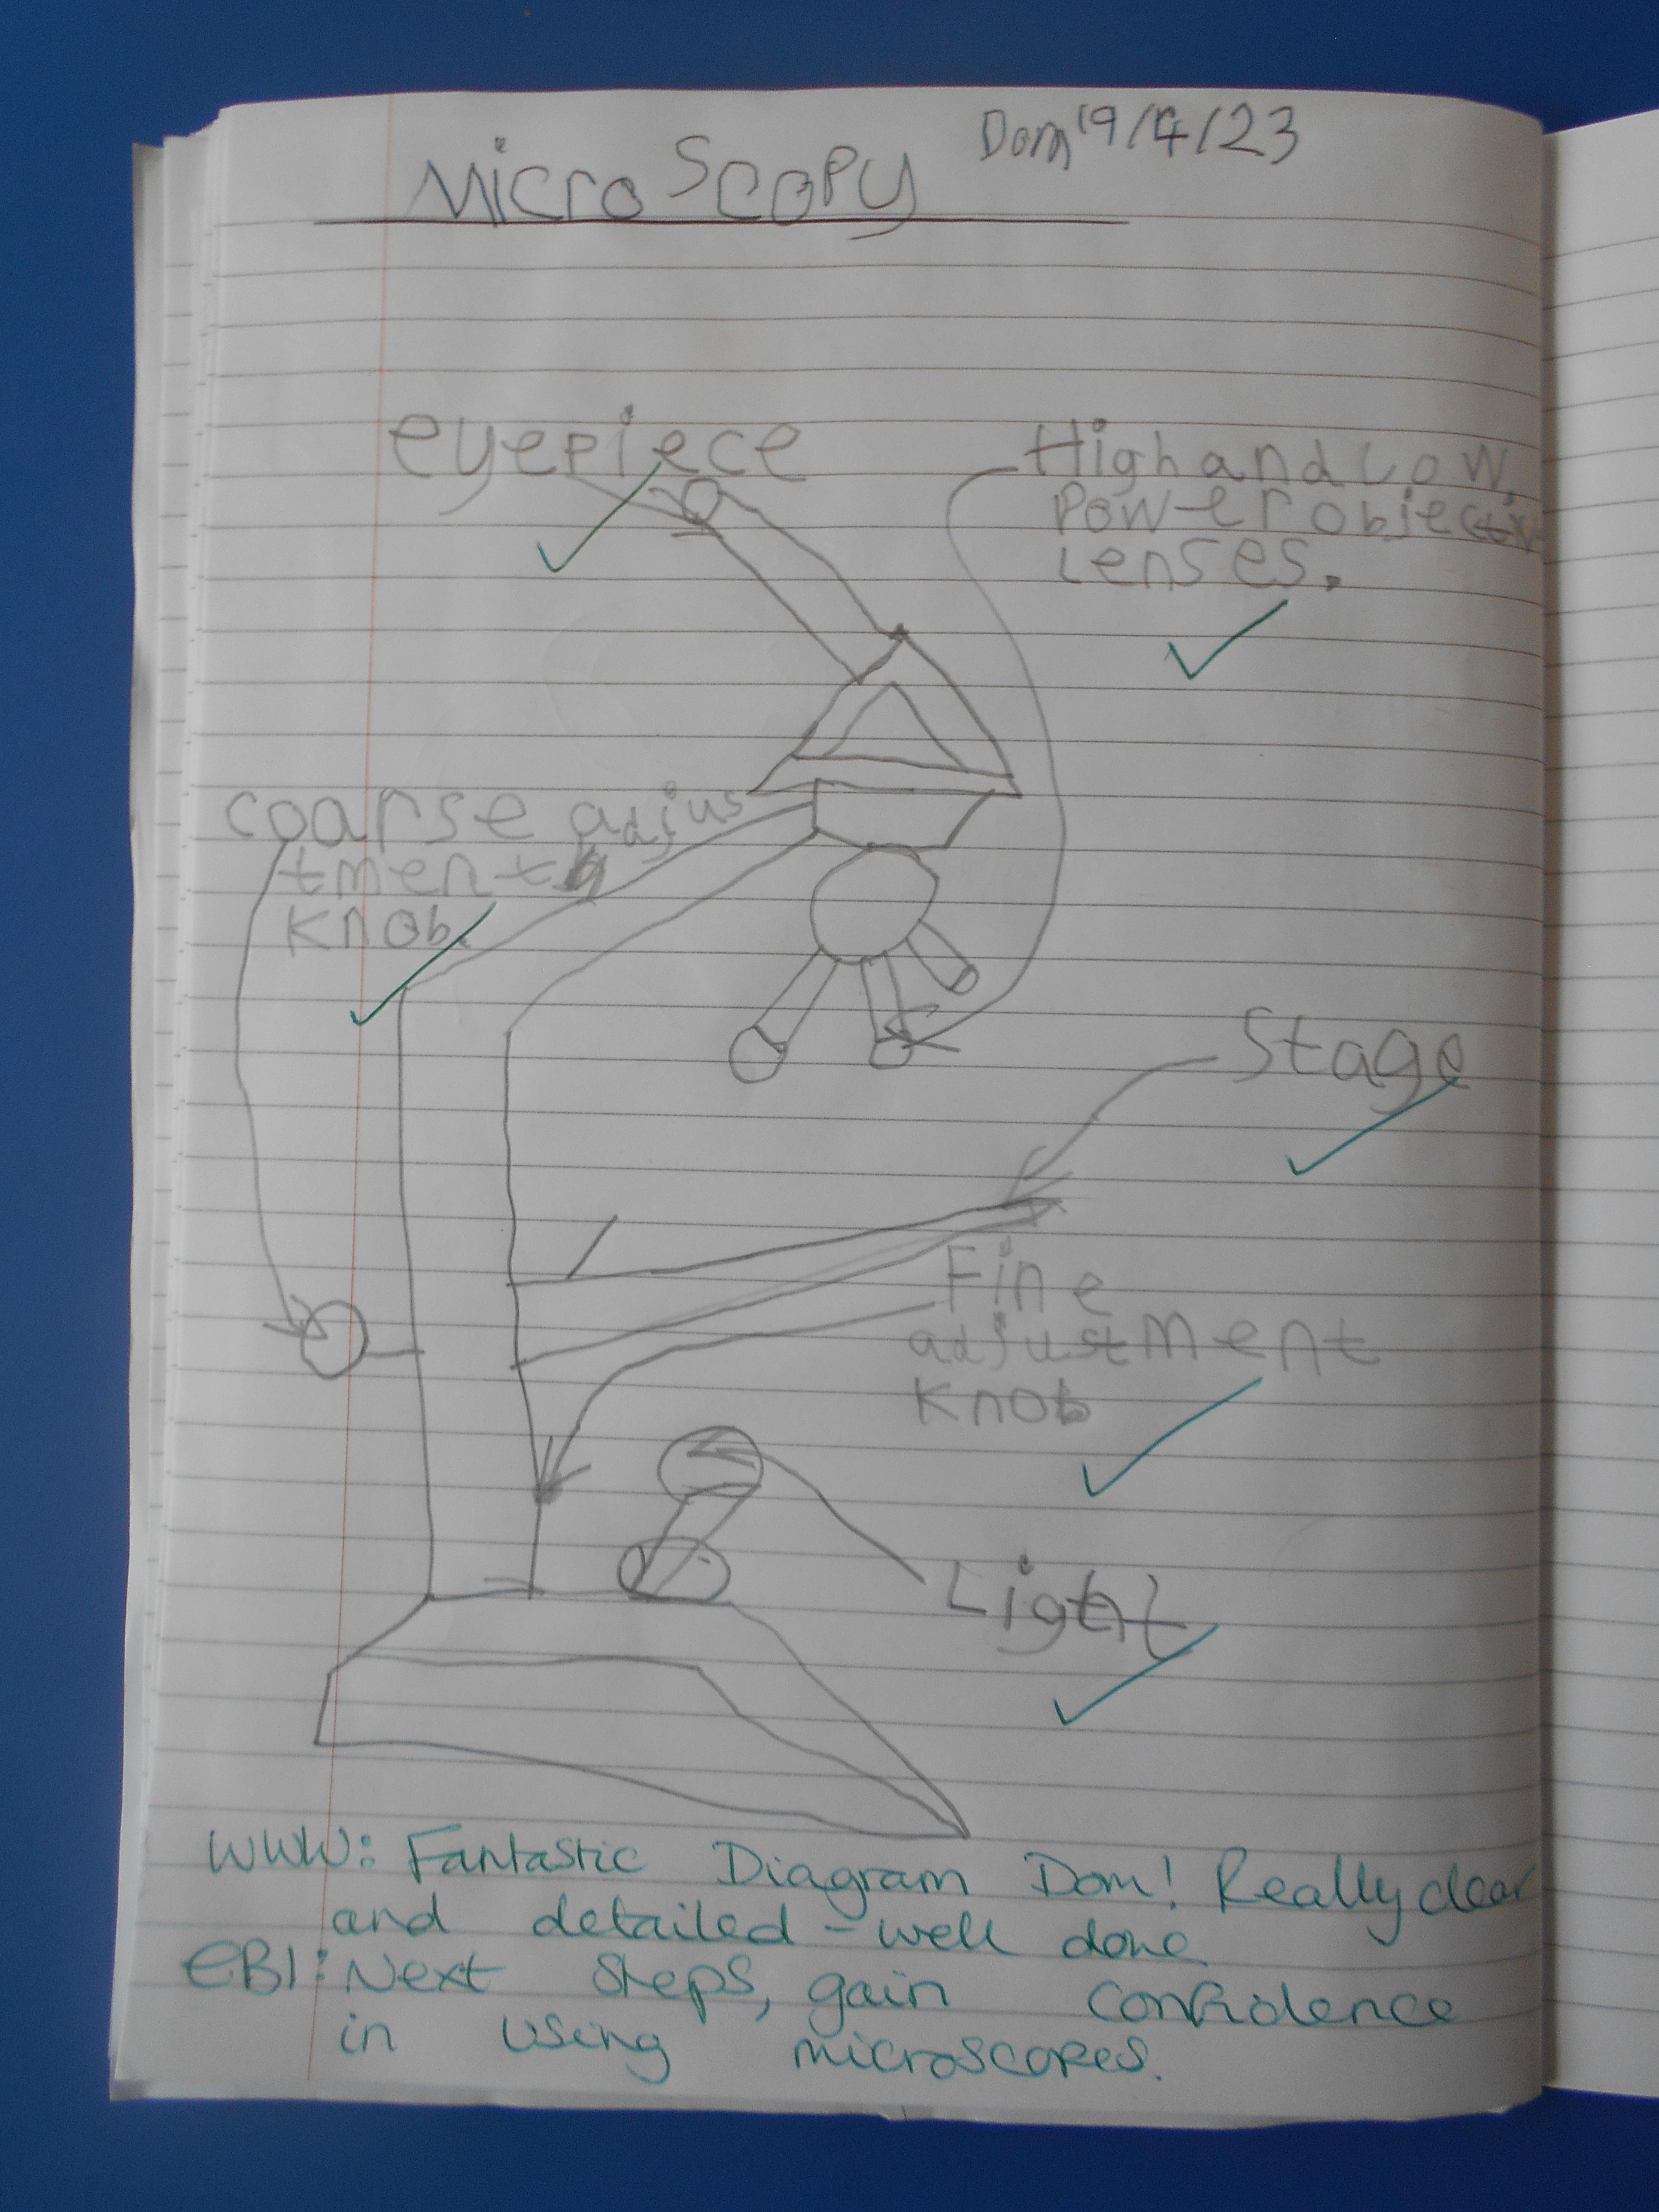 Microscopy
Dom 19/4/23
eyepiece
High and Low
Power objectiv
Lenses.
coarse adjus
tment
knob.
Stage
Fine
adjustment
knob
Light
WWW: Fantastic Diagram Dom! Really clear
and detailed - well done
EBI: Next steps, gain confidence
in using microscopes.